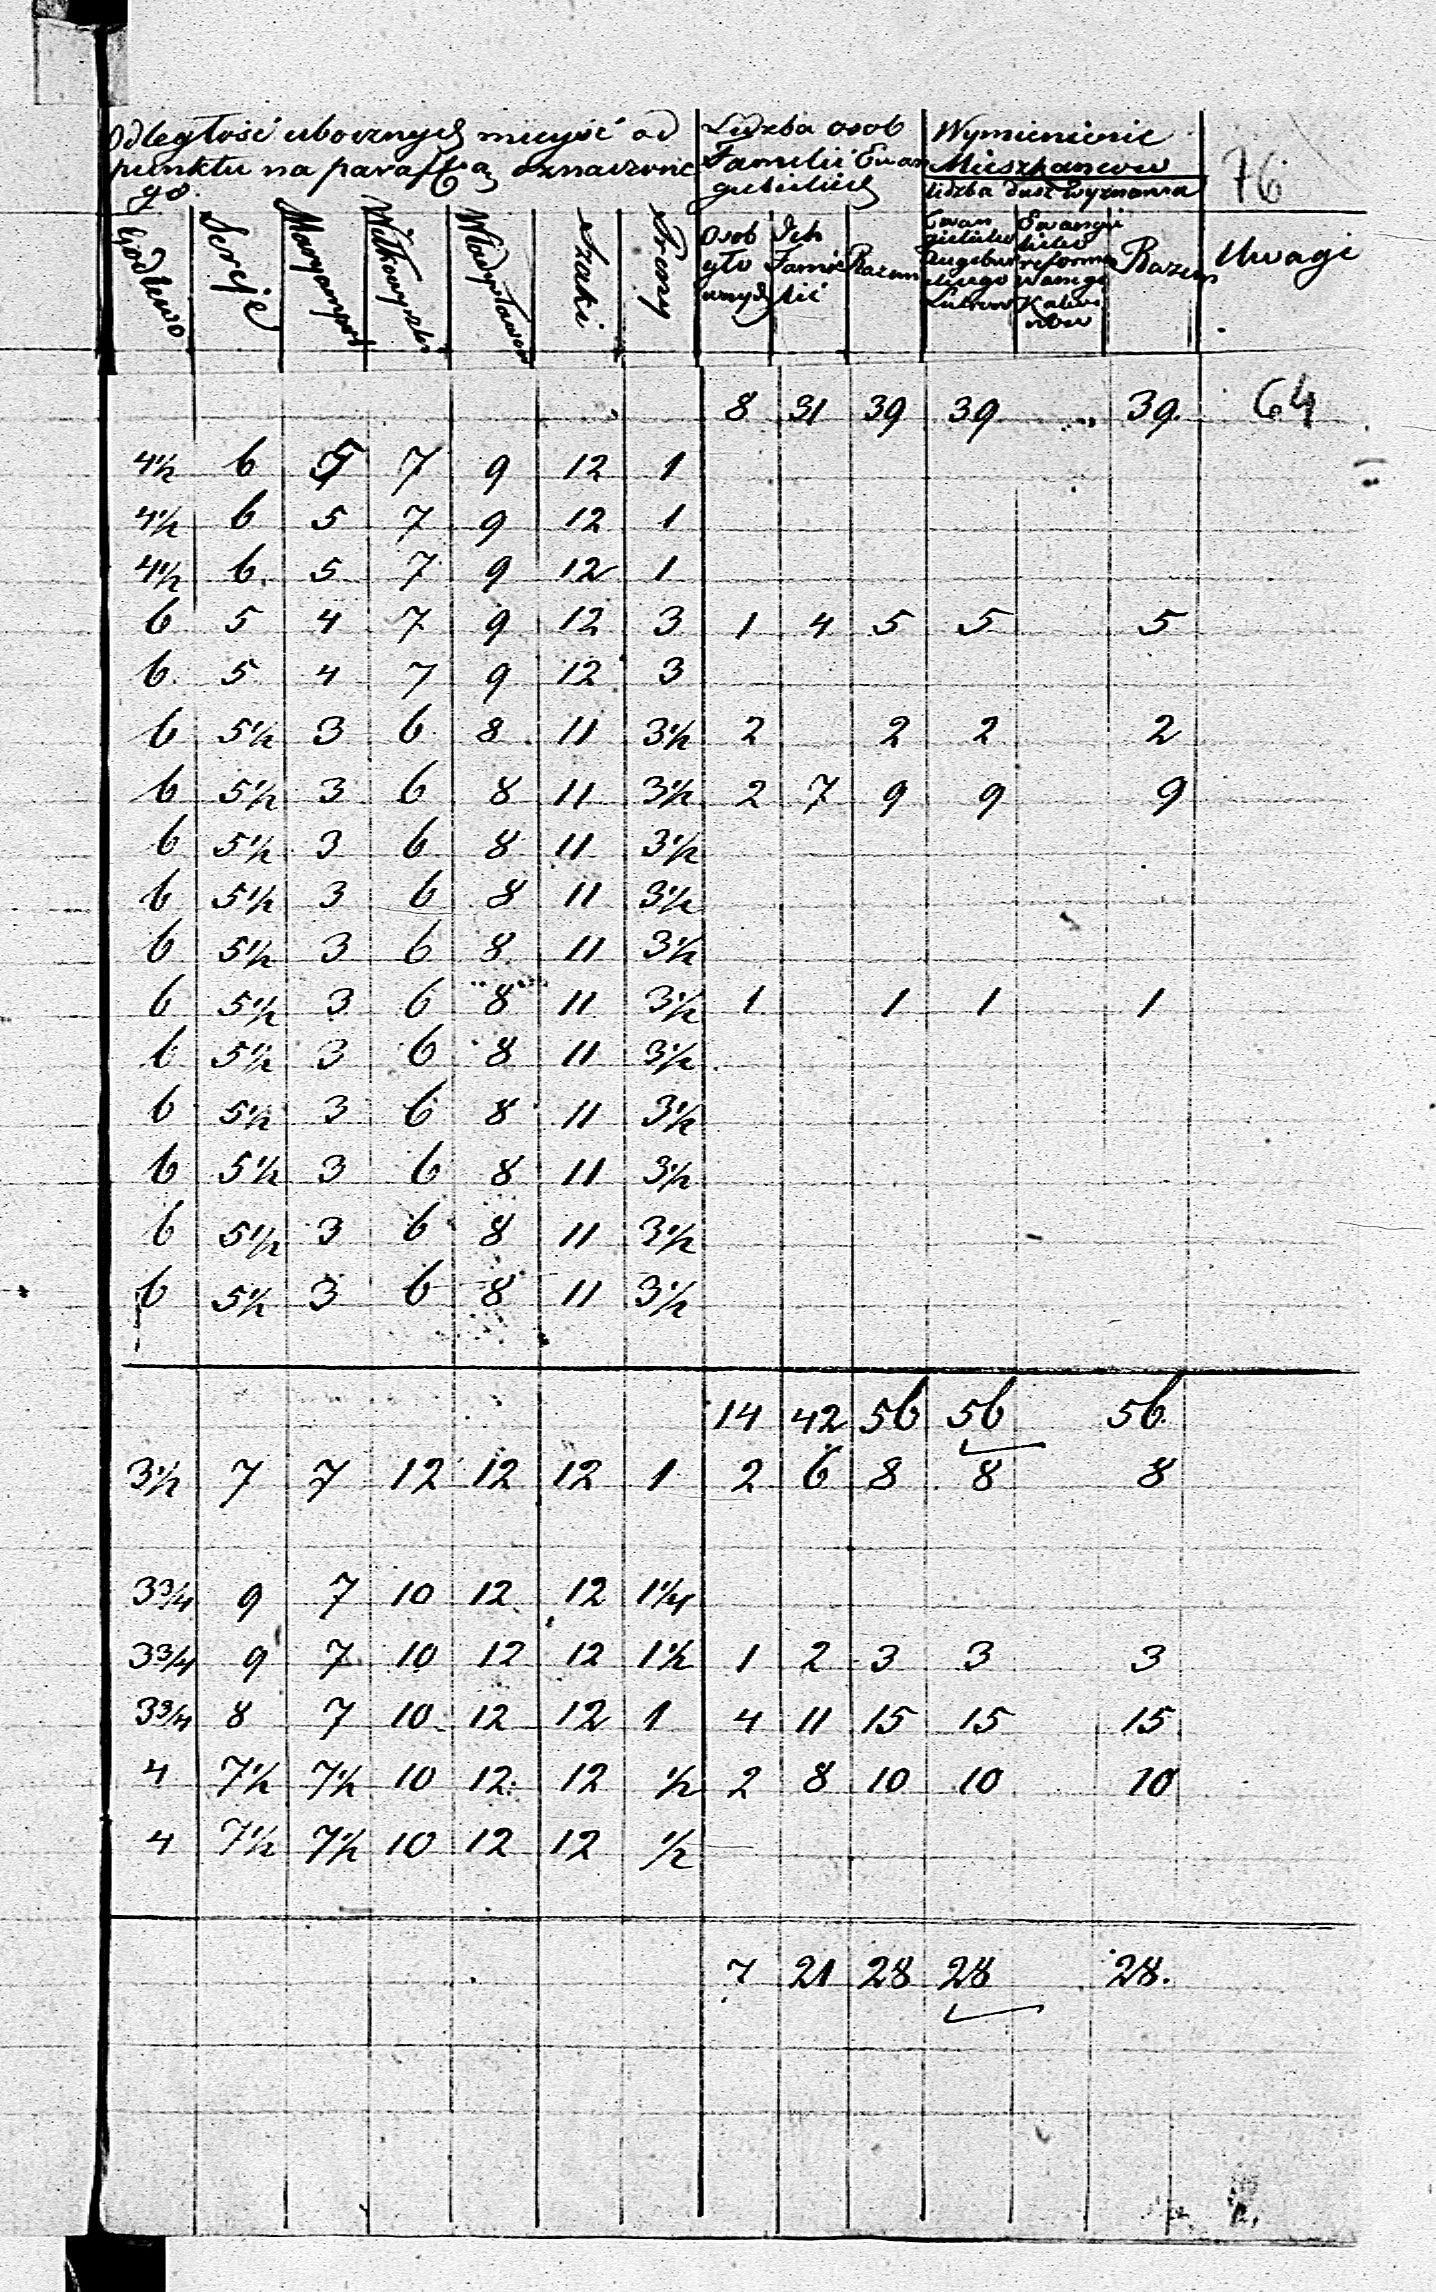 Odległość ubocznych mieysc od
punktu na parafią oznaczone
go.
Liczba osob
Familii Ewan
gielickich
Wymienienie
Mieszkancow
liczba dusz Wyznania
76
Godlewo
Sereje
Maryampol
Wiłkowyszki
Władysławow
Szaki
Preny
Osob
głó
wnych
Ich
Fami
lii
Razem
Ewan
gielicko
Augsbur
skiego
Lutrow
Ewangi
licko
reformo
wanego
Kalwi
now
Razem
Uwagi
8 31 39 39 „ 39. 64
4½ 6 5 7 9 12 1
4½ 6 5 7 9 12 1
4½ 6. 5 7 9 12 1
6 5 4 7 9 12 3 1 4 5 5 5
6. 5 4 7 9 12 3
6 5½ 3 6 8 11 3½ 2 2 2 2
6 5½ 3 6 8 11 3½ 2 7 9 9 9
6 5½ 3 6 8 11 3½
6 5½ 3 6 8 11 3½
6 5½ 3 6 8 11 3½
6 5½ 3 6 8 11 3½ 1 1 1 1
6 5½ 3 6 8 11 3½
6 5½ 3 6 8 11 3½
6 5½ 3 6 8 11 3½
6 5½ 3 6 8 11 3½
6 5½ 3 6 8 11 3½
14 42 56 56 56.
3½ 7 7 12 12 12 1 2 6 8 8 8
3¾ 9 7 10 12 12 1¼
3¾ 9 7 10 12 12 1½ 1 2 3 3 3
3¾ 8 7 10 12 12 1 4 11 15 15 15
4 7½ 7½ 10 12 12 ½ 2 8 10 10 10
4 7½ 7½ 10 12 12 ½
7 21 28 28 28.